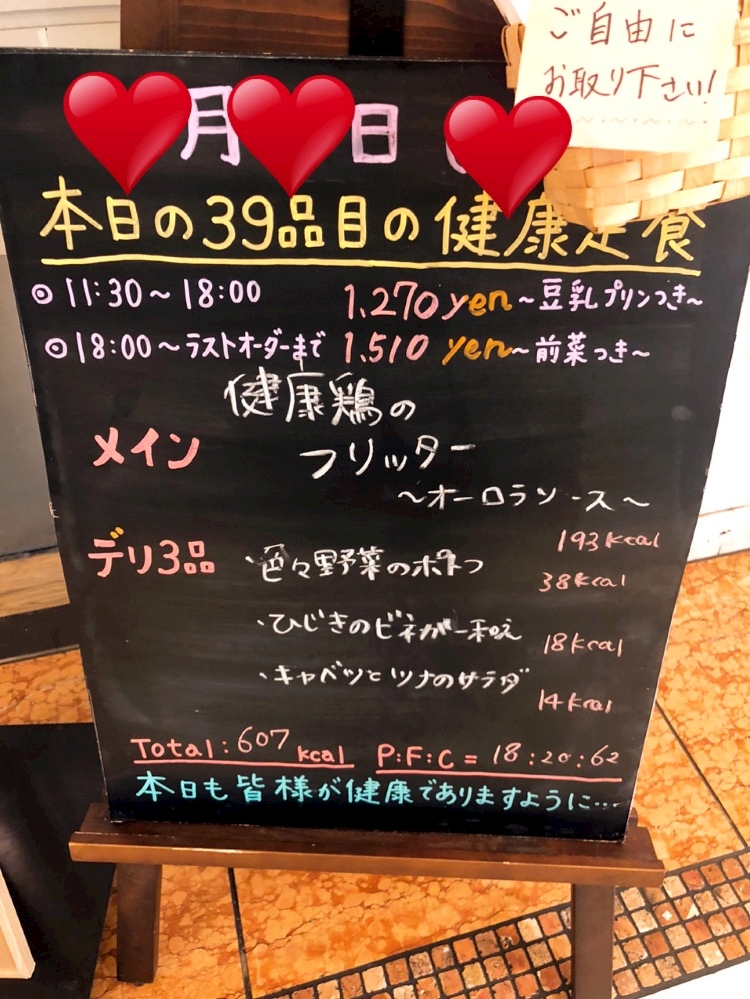 ご自由に
お取り下さい!
月 日
本日の39品目の健康定食
◎11:30~18:00 1,270yen~豆乳プリンつき~
◎18:00~ラストオーダーまで 1,510 yen~前菜つき~
メイン
健康鶏の
フリッター
~オーロラソース~
193kcal
デリ3品
・色々野菜のポトフ
38kcal
・ひじきのビネガー和え
18kcal
・キャベツとツナのサラダ
14kcal
Total:607kcal P:F:C=18:20:62
本日も皆様が健康でありますように…